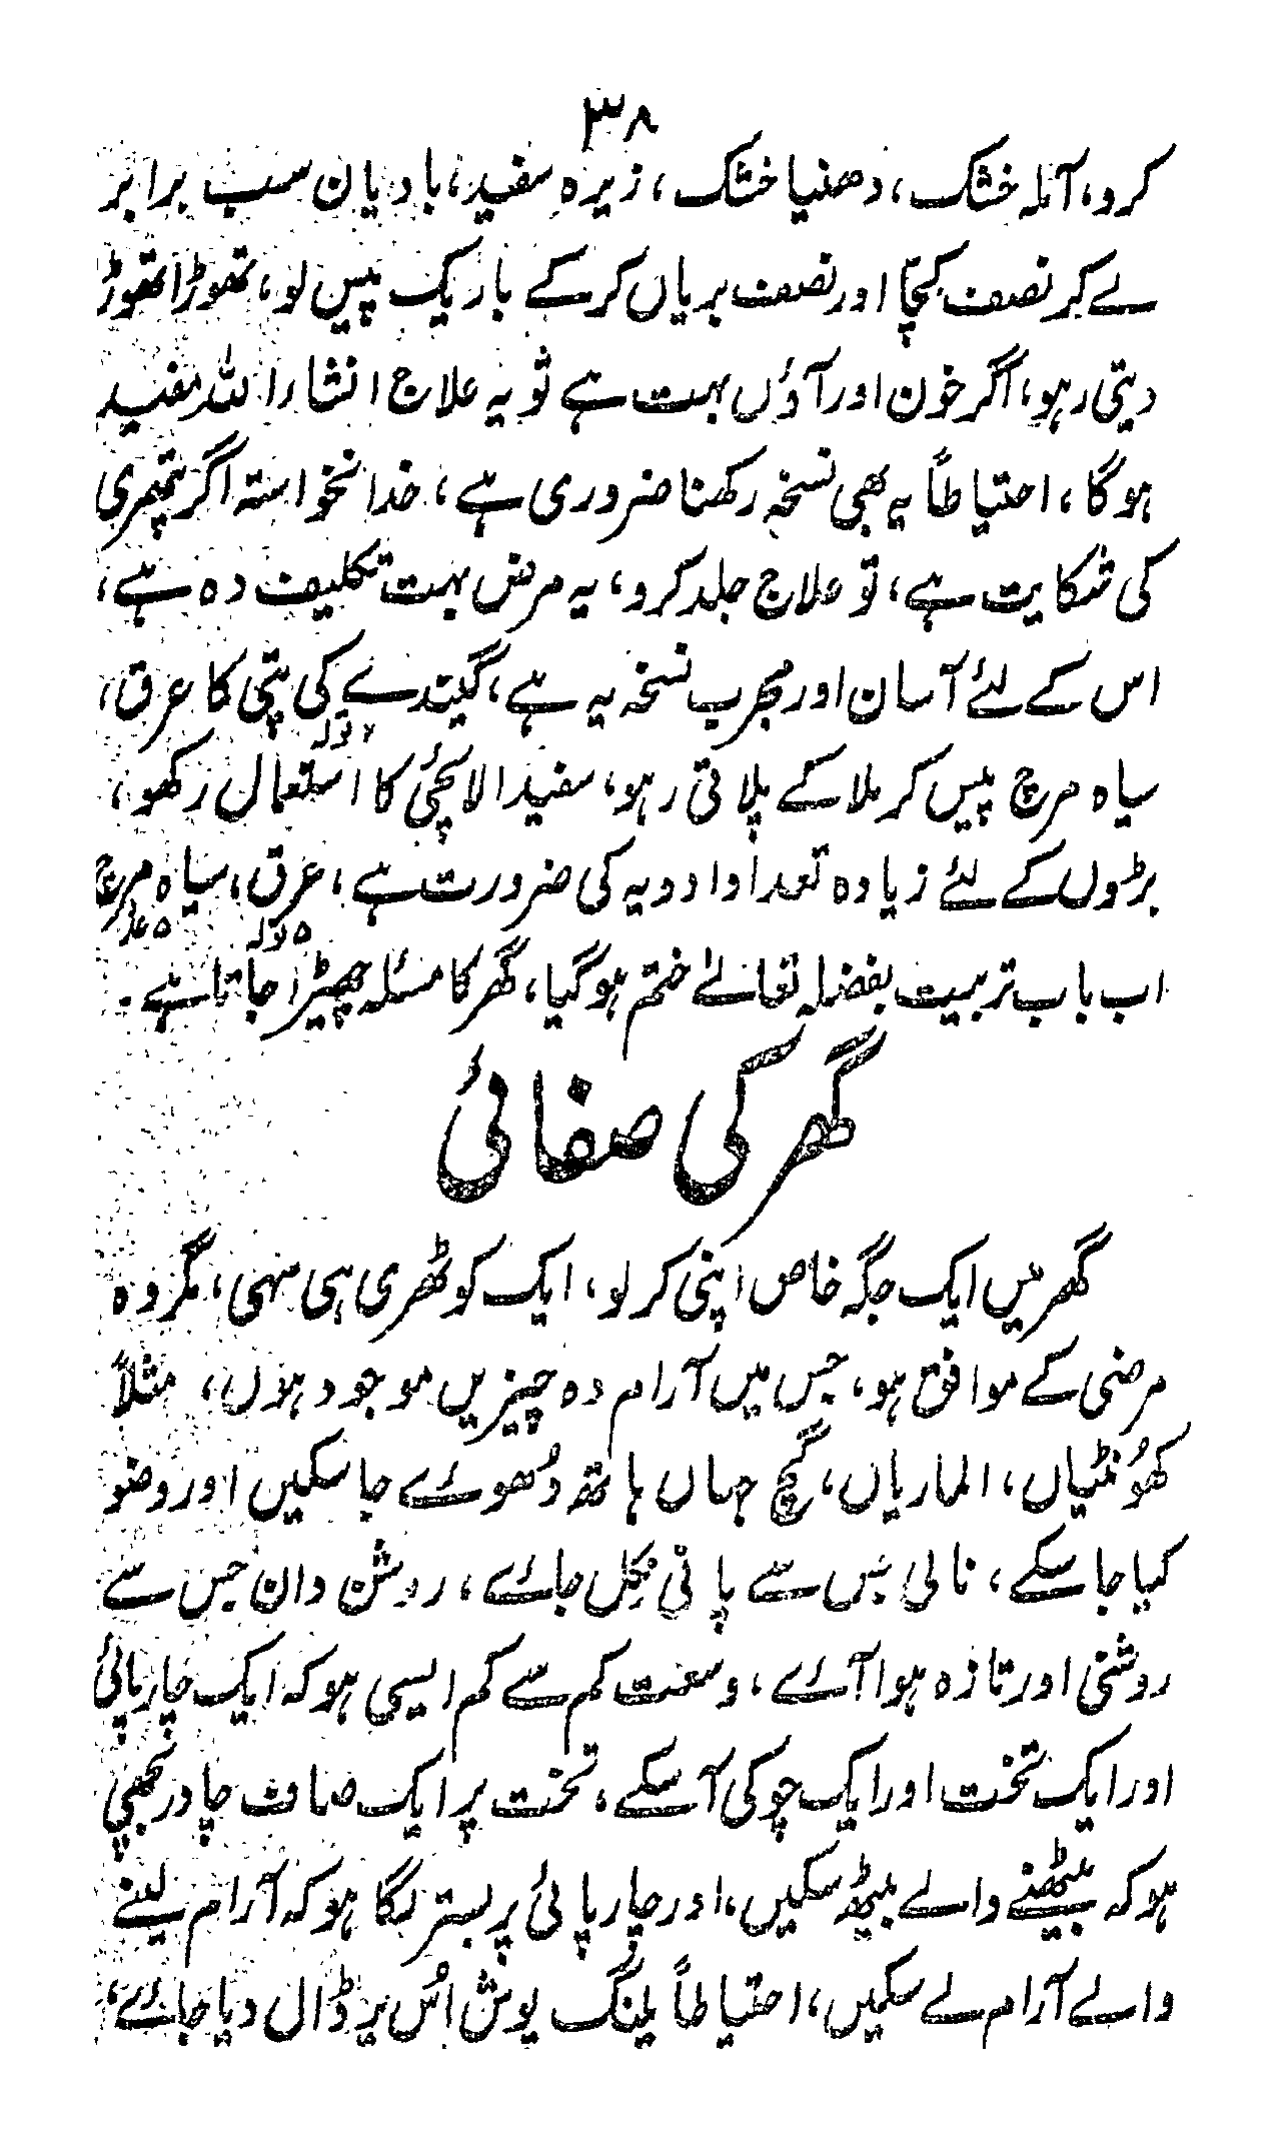 ۳۸
کرو، آملہ خشک، دھنیا خشک، زیرہ سفید، بادیان سب برابر
لے کر نصف کچّا اور نصف بریاں کر کے باریک پیس لو، تھوڑا تھوڑ
دیتی رہو، اگر خون اور آؤں بہت ہے تو یہ علاج انشاء اللہ مفید
ہوگا، احتیاطاً یہ بھی نسخہ رکھنا ضروری ہے، خدانخواستہ اگر پتھری
کی شکایت ہے، تو علاج جلد کرو، یہ مرض بہت تکلیف دہ ہے،
اس کے لئے آسان اور مجرب نسخہ یہ ہے، گیندے کی پتی کا عرق،
تولہ
سیاہ مرچ پیس کر ملا کے پلاتی رہو، سفید الائچی کا استعمال رکھو،
بڑوں کے لئے زیادہ تعداد ادویہ کی ضرورت ہے، عرق، سیاہ مرچ
۵ تولہ ۵ عدد
اب باب تربیت بفضلہ تعالےٰ ختم ہوگیا، گھر کا مسئلہ چھیڑا جاتا ہے۔
گھر کی صفائی
گھر میں ایک جگہ خاص اپنی کر لو، ایک کوٹھری ہی سہی، مگر وہ
مرضی کے موافق ہو، جس میں آرام دہ چیزیں موجود ہوں، مثلاً
کھُونٹیاں، الماریاں، گچ جہاں ہاتھ دُھوئے جا سکیں اور وضو
کیا جا سکے، نالی جس سے پانی نکل جائے، روشن دان جس سے
روشنی اور تازہ ہوا آئے، وسعت کم سے کم ایسی ہو کہ ایک چارپائی
اور ایک تخت اور ایک چوکی آ سکے، تخت پر ایک صاف چادر بچھی
ہو کہ بیٹھنے والے بیٹھ سکیں، اور چارپائی پر بستر لگا ہو کہ آرام لینے
والے آرام لے سکیں، احتیاطاً پلنگ پوش اُس پر ڈال دیا جائے،